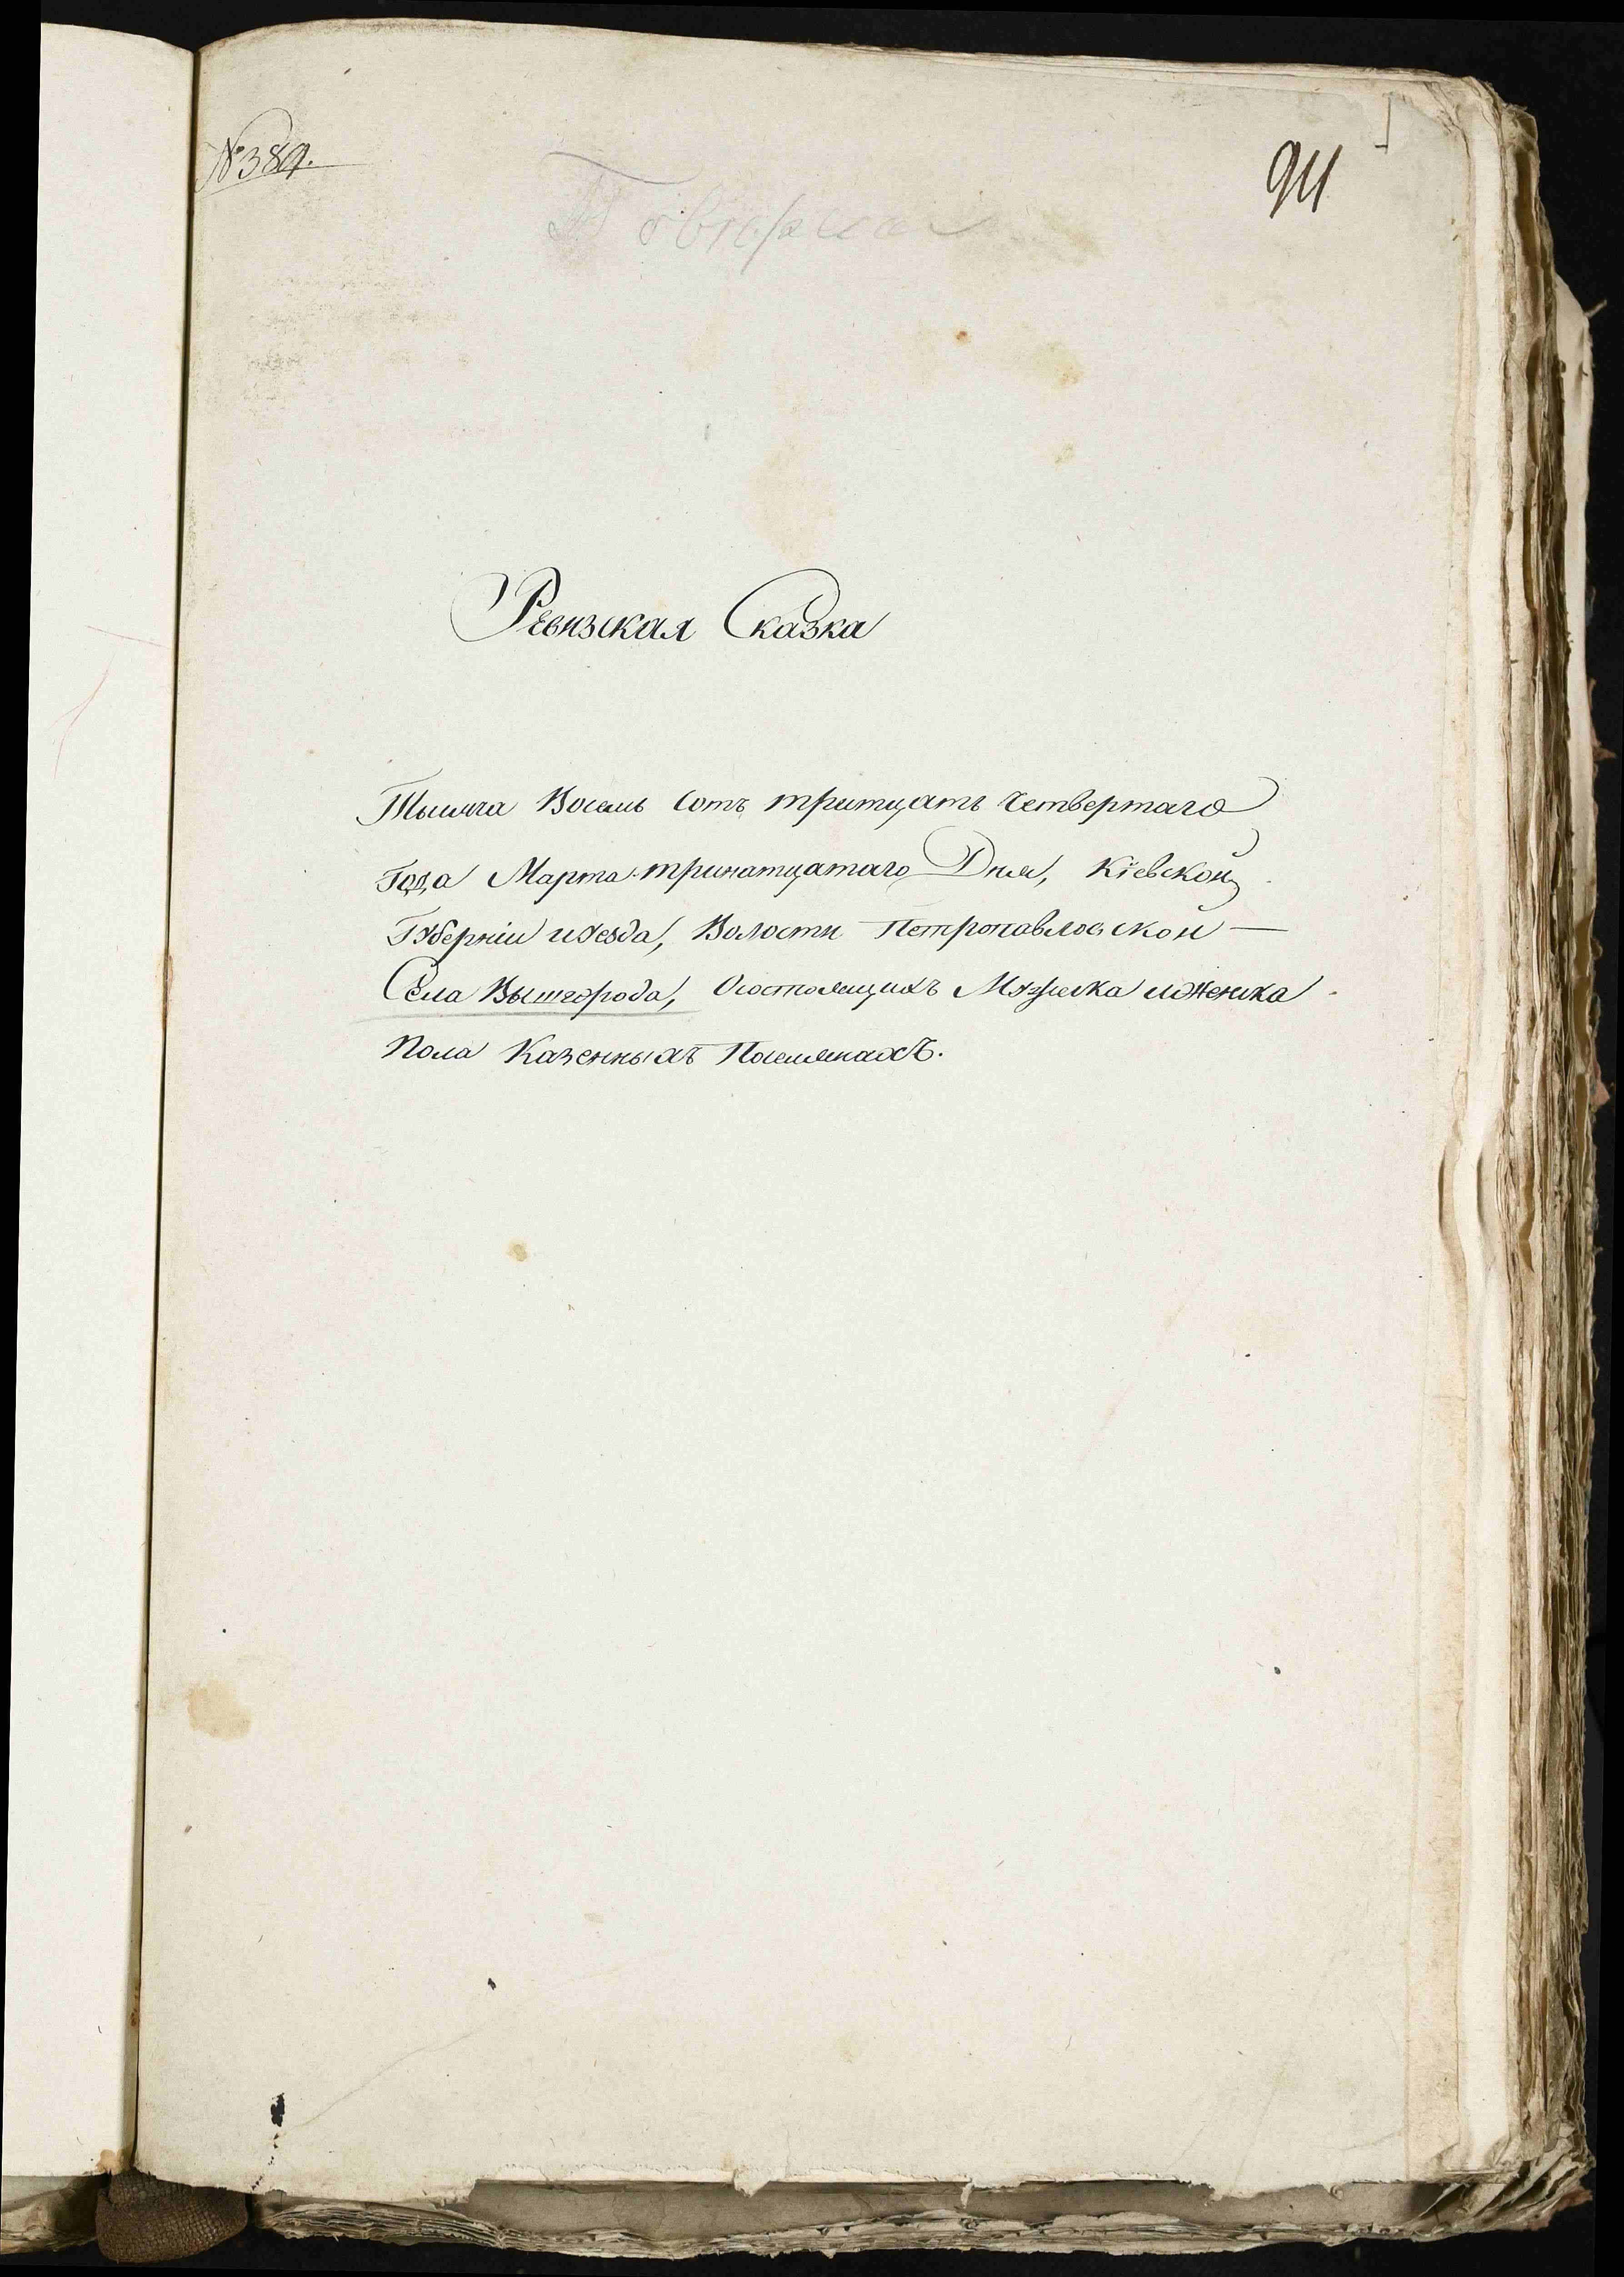 № 389.
911
Ревизская Сказка
Тысяча Восемь Сотъ тритцать Четвертаго
Года Марта тринатцатаго Дня, Кіевской
Губерніи иуезда, Волости Петропавловской —
Села Вышгорода, Осостоящихъ Мужеска иЖенска
Пола Казенныхъ Поселянахъ.